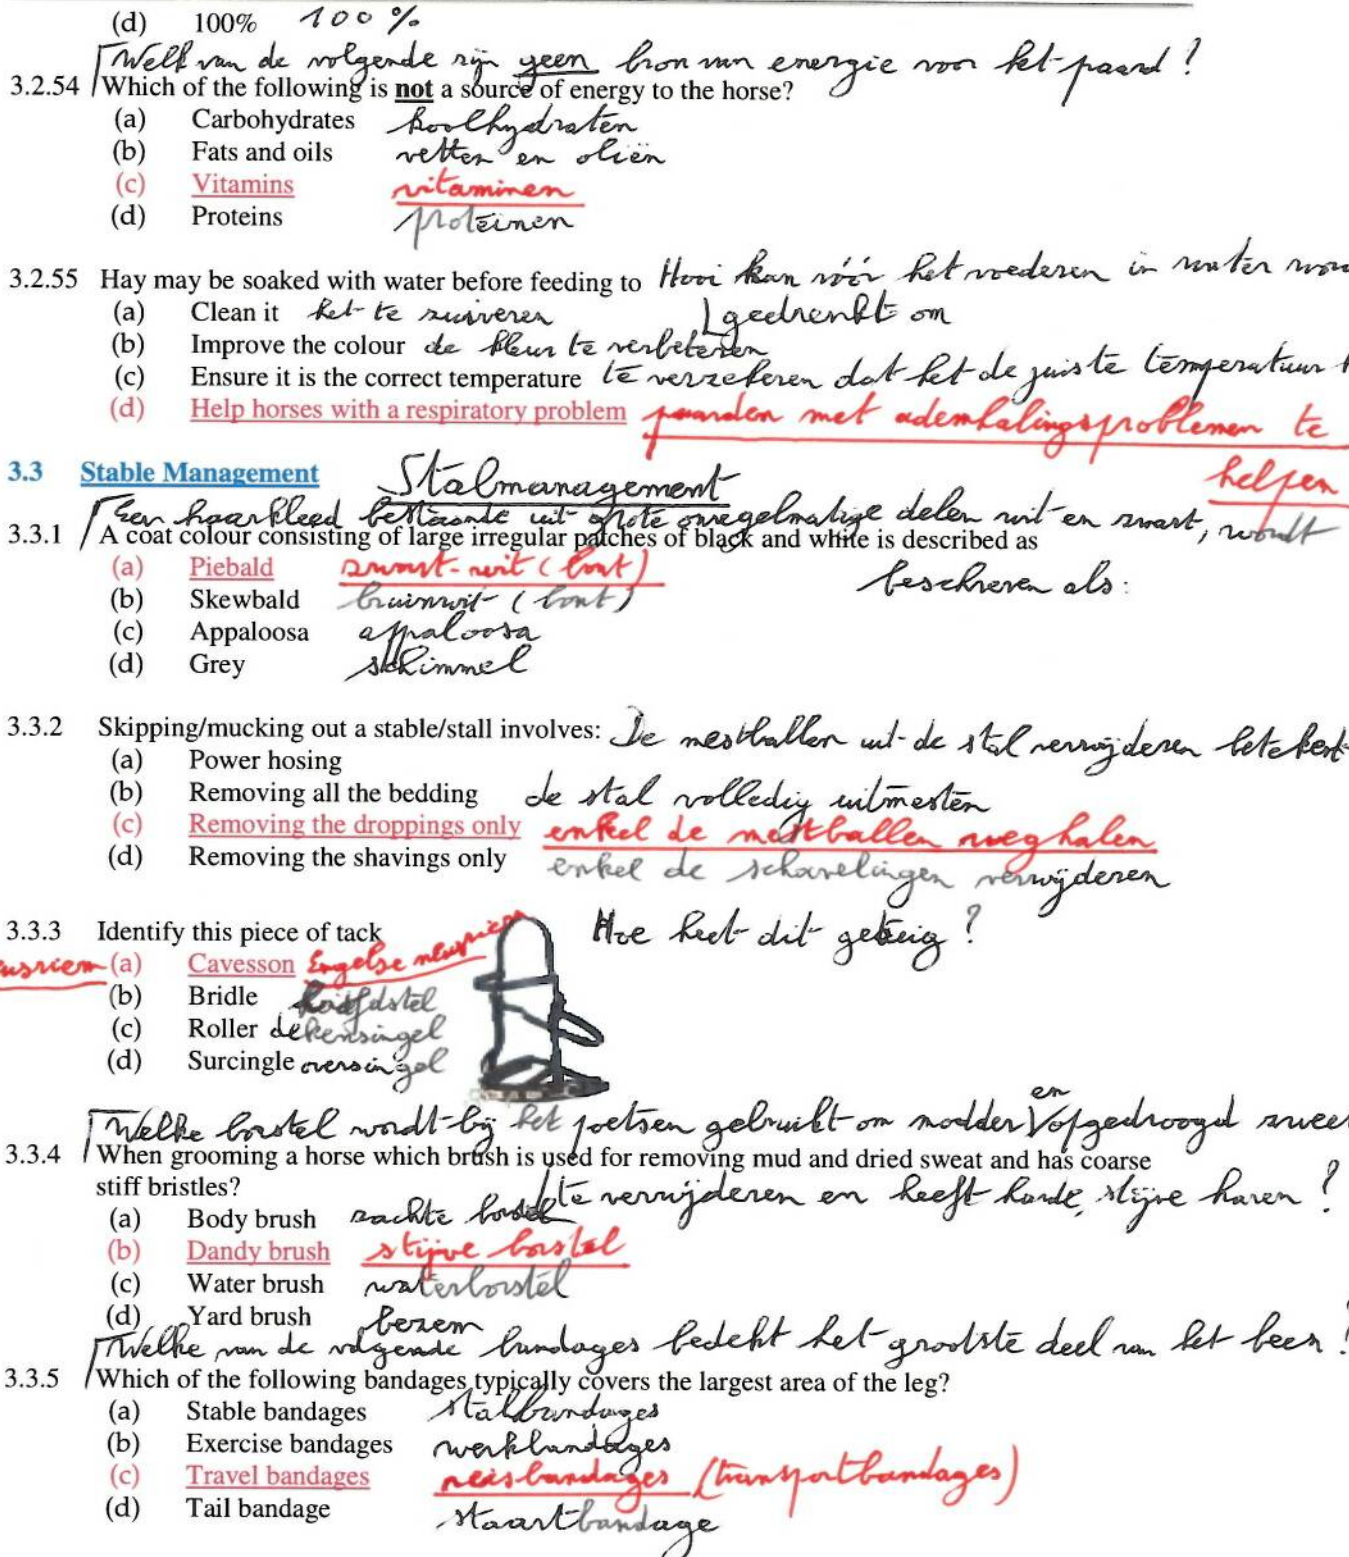 (d) 100% 100%
Welk van de volgende zijn geen bron van energie voor het paard?
3.2.54 Which of the following is not a source of energy to the horse?
(a) Carbohydrates koolhydraten
(b) Fats and oils vetten en oliën
(c) Vitamins vitaminen
(d) Proteins proteïnen
3.2.55 Hay may be soaked with water before feeding to Hooi kan vóór het voederen in water
gedrenkt om
(a) Clean it het te zuiveren
(b) Improve the colour de kleur te verbeteren
(c) Ensure it is the correct temperature te verzekeren dat het de juiste temperatuur
(d) Help horses with a respiratory problem paarden met ademhalingsproblemen te
helpen
3.3 Stable Management Stalmanagement
Een haarkleed bestaande uit grote onregelmatige delen wit en zwart, wordt
3.3.1 A coat colour consisting of large irregular patches of black and white is described as
beschreven als:
(a) Piebald zwart-wit (bont)
(b) Skewbald bruinwit (bont)
(c) Appaloosa appaloosa
(d) Grey schimmel
3.3.2 Skipping/mucking out a stable/stall involves: De mestballen uit de stal verwijderen betekent
(a) Power hosing
(b) Removing all the bedding de stal volledig uitmesten
(c) Removing the droppings only enkel de mestballen weghalen
(d) Removing the shavings only enkel de schavelingen verwijderen
3.3.3 Identify this piece of tack Hoe heet dit getuig?
(a) Cavesson Engelse neusriem
(b) Bridle hoofdstel
(c) Roller dekensingel
(d) Surcingle oversingel
Welke borstel wordt bij het poetsen gebruikt om modder en opgedroogd
3.3.4 When grooming a horse which brush is used for removing mud and dried sweat and has coarse
stiff bristles? te verwijderen en heeft harde, stijve haren?
(a) Body brush zachte borstel
(b) Dandy brush stijve borstel
(c) Water brush waterborstel
(d) Yard brush bezem
Welke van de volgende bandages bedekt het grootste deel van het been?
3.3.5 Which of the following bandages typically covers the largest area of the leg?
(a) Stable bandages stalbandages
(b) Exercise bandages werkbandages
(c) Travel bandages reisbandages (transportbandages)
(d) Tail bandage staartbandage